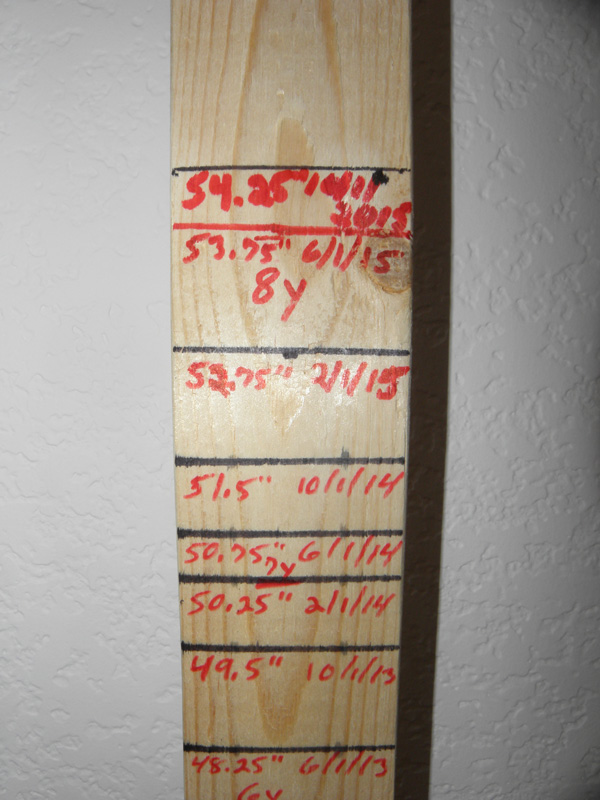 54.25" 10/1/
2015
53.75" 6/1/15
8y
52.75" 2/1/15
51.5" 10/1/14
50.75" 6/1/14
7y
50.25" 2/1/14
49.5" 10/1/13
48.25" 6/1/13
6y